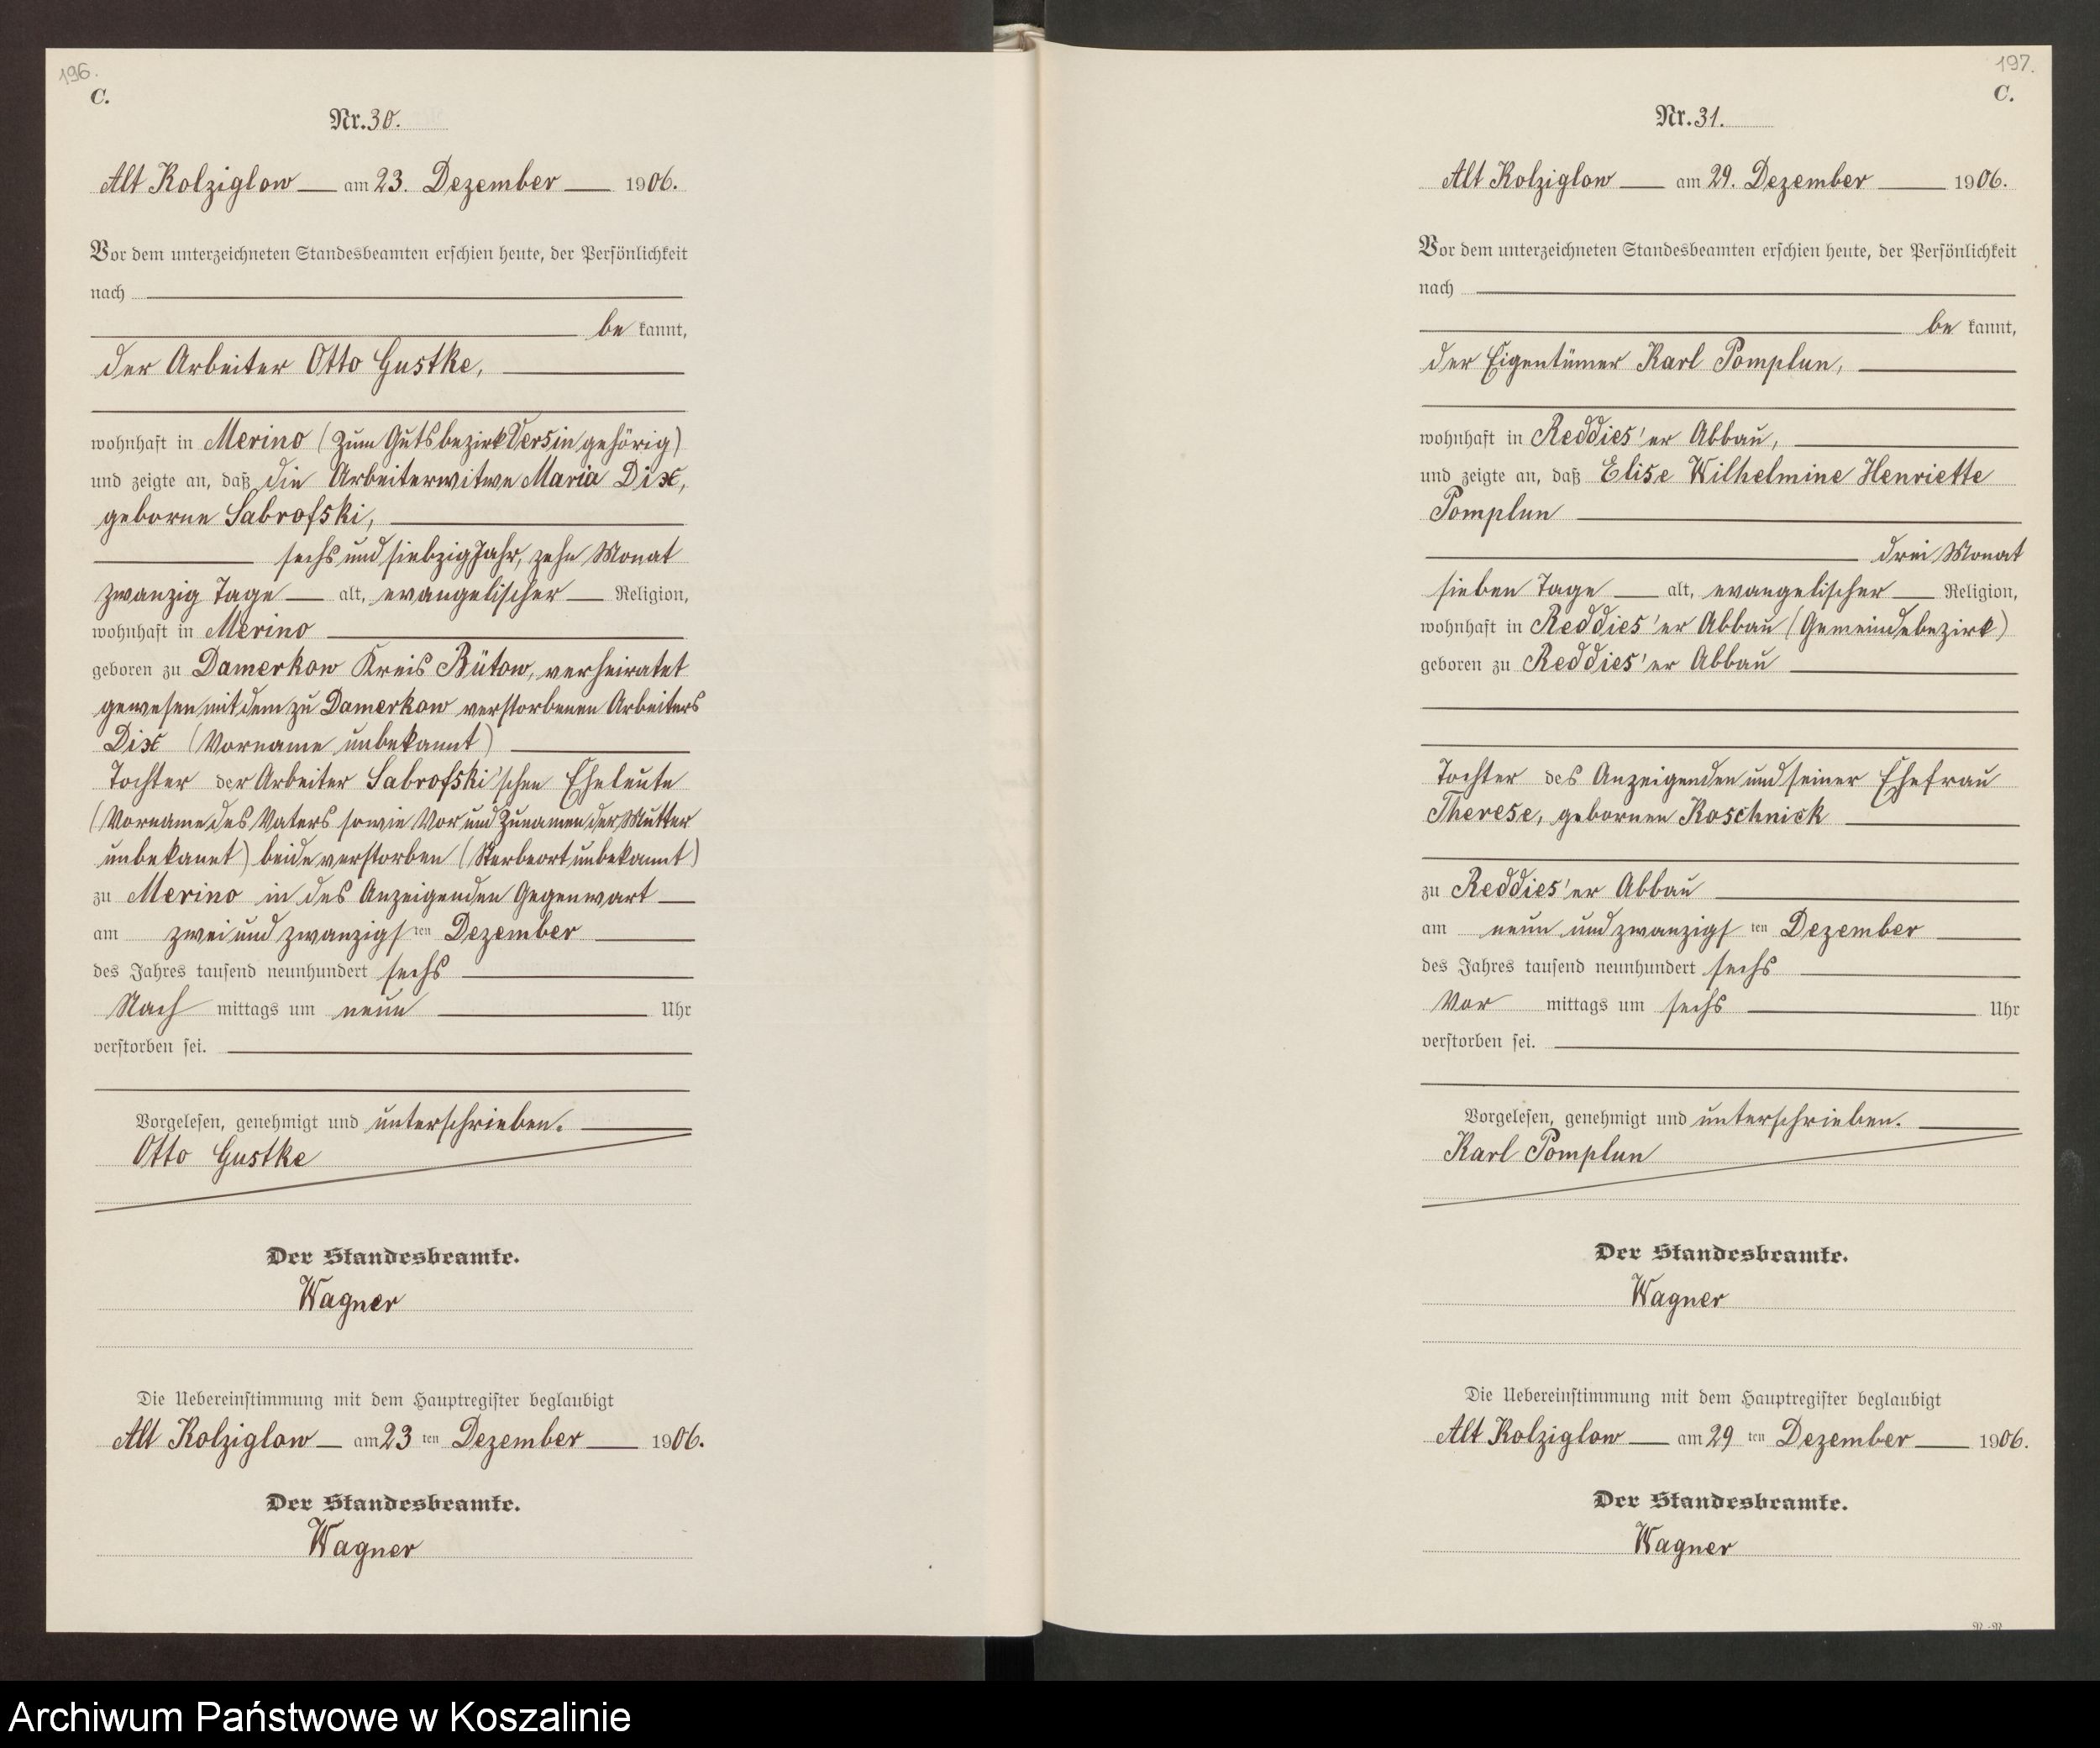 196.
C.
Nr. 30.
Alt Kolziglow am 23. Dezember 1906.
Vor dem unterzeichneten Standesbeamten erschien heute, der Persönlichkeit
nach
be kannt,
der Arbeiter Otto Gustke,
wohnhaft in Merino (zum Gutsbezirk Versin gehörig)
und zeigte an, daß die Arbeiterwitwe Maria Dix,
geborne Sabrofski,
sechs und siebzig Jahr, zehn Monat
zwanzig Tage alt, evangelischer Religion,
wohnhaft in Merino
geboren zu Damerkow Kreis Bütow, verheiratet
gewesen mit dem zu Damerkow verstorbenen Arbeiters
Dix (Vorname unbekannt)
Tochter der Arbeiter Sabrofski'schen Eheleute
(Vorname des Vaters sowie Vor und Zunamen der Mutter
unbekannt) beide verstorben (Sterbeort unbekannt)
zu Merino in des Anzeigenden Gegenwart
am zwei und zwanzigs ten Dezember
des Jahres tausend neunhundert sechs
Nach mittags um neun Uhr
verstorben sei.
Vorgelesen, genehmigt und unterschrieben.
Otto Gustke
Der Standesbeamte.
Wagner
Die Uebereinstimmung mit dem Hauptregister beglaubigt
Alt Kolziglow am 23 ten Dezember 1906.
Der Standesbeamte.
Wagner
197.
C.
Nr. 31.
Alt Kolziglow am 29. Dezember 1906.
Vor dem unterzeichneten Standesbeamten erschien heute, der Persönlichkeit
nach
be kannt,
der Eigentümer Karl Pomplun,
wohnhaft in Reddies'er Abbau,
und zeigte an, daß Elise Wilhelmine Henriette
Pomplun
drei Monat
sieben Tage alt, evangelischer Religion,
wohnhaft in Reddies'er Abbau (Gemeindebezirk)
geboren zu Reddies'er Abbau
Tochter des Anzeigenden und seiner Ehefrau
Therese, gebornen Roschnick
zu Reddies'er Abbau
am neun und zwanzigs ten Dezember
des Jahres tausend neunhundert sechs
Vor mittags um sechs Uhr
verstorben sei.
Vorgelesen, genehmigt und unterschrieben.
Karl Pomplun
Der Standesbeamte.
Wagner
Die Uebereinstimmung mit dem Hauptregister beglaubigt
Alt Kolziglow am 29 ten Dezember 1906.
Der Standesbeamte.
Wagner
Archiwum Państwowe w Koszalinie